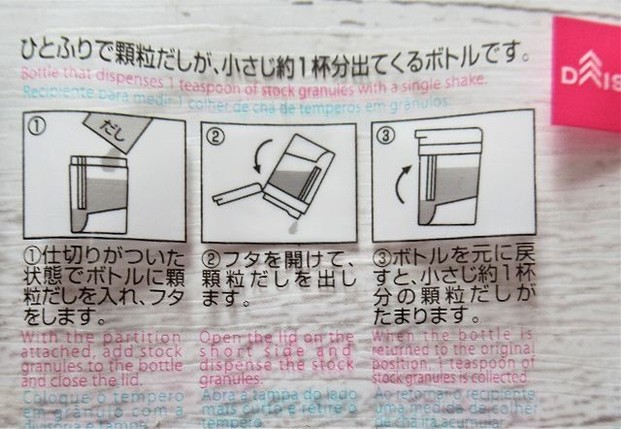 ひとふりで顆粒だしが、小さじ約1杯分出てくるボトルです。
Bottle that dispenses 1 teaspoon of stock granules with a single shake.
Recipiente para medir 1 colher de chá de temperos em grânulos.
DAIS
①
だし
②
③
①仕切りがついた
状態でボトルに顆
粒だしを入れ、フタ
をします。
With the partition
attached, add stock
granules to the bottle
and close the lid.
Coloque o tempero
em grânulo com a
divisória e tampe.
②フタを開けて、
顆粒だしを出し
ます。
Open the lid on the
short side and
dispense the stock
granules.
Abra a tampa do lado
mais curto e retire o
tempero.
③ボトルを元に戻
すと、小さじ約1杯
分の顆粒だしが
たまります。
When the bottle is
returned to the original
position, 1 teaspoon of
stock granules is collected.
Ao retornar o recipiente
uma medida de colher
de chá irá acumular.